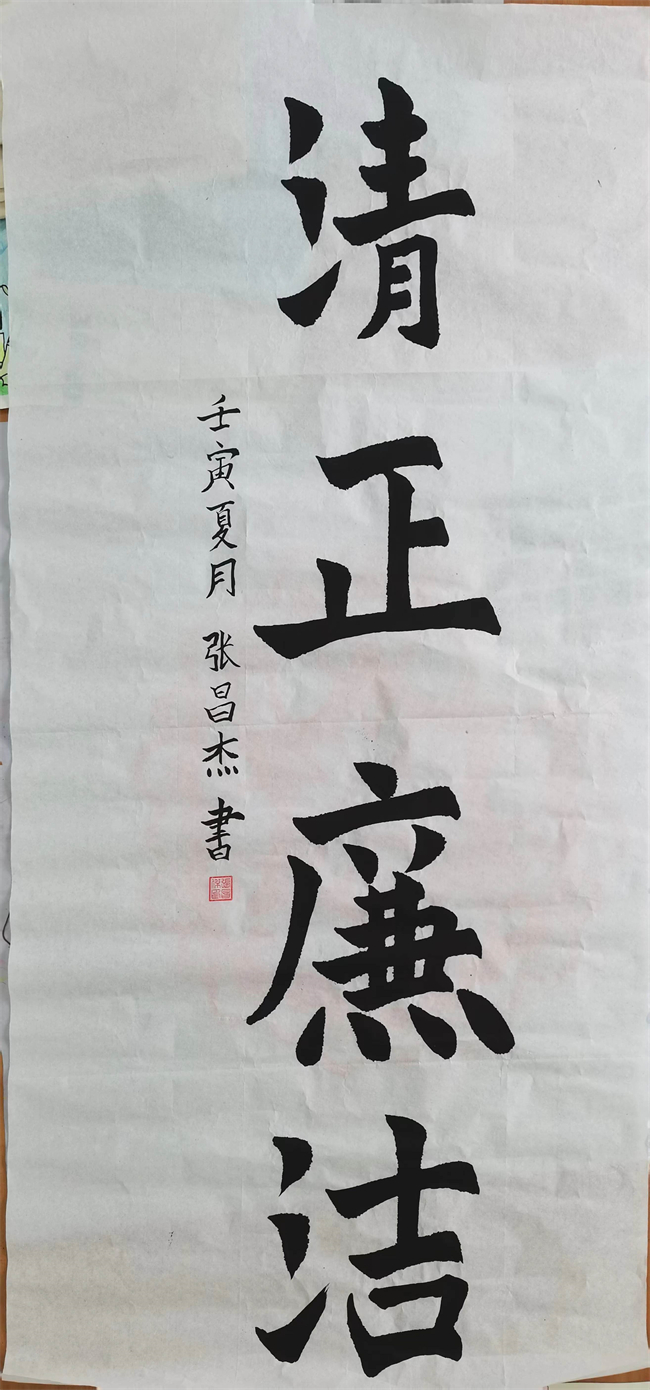 清正廉洁
壬寅夏月 张昌杰 書